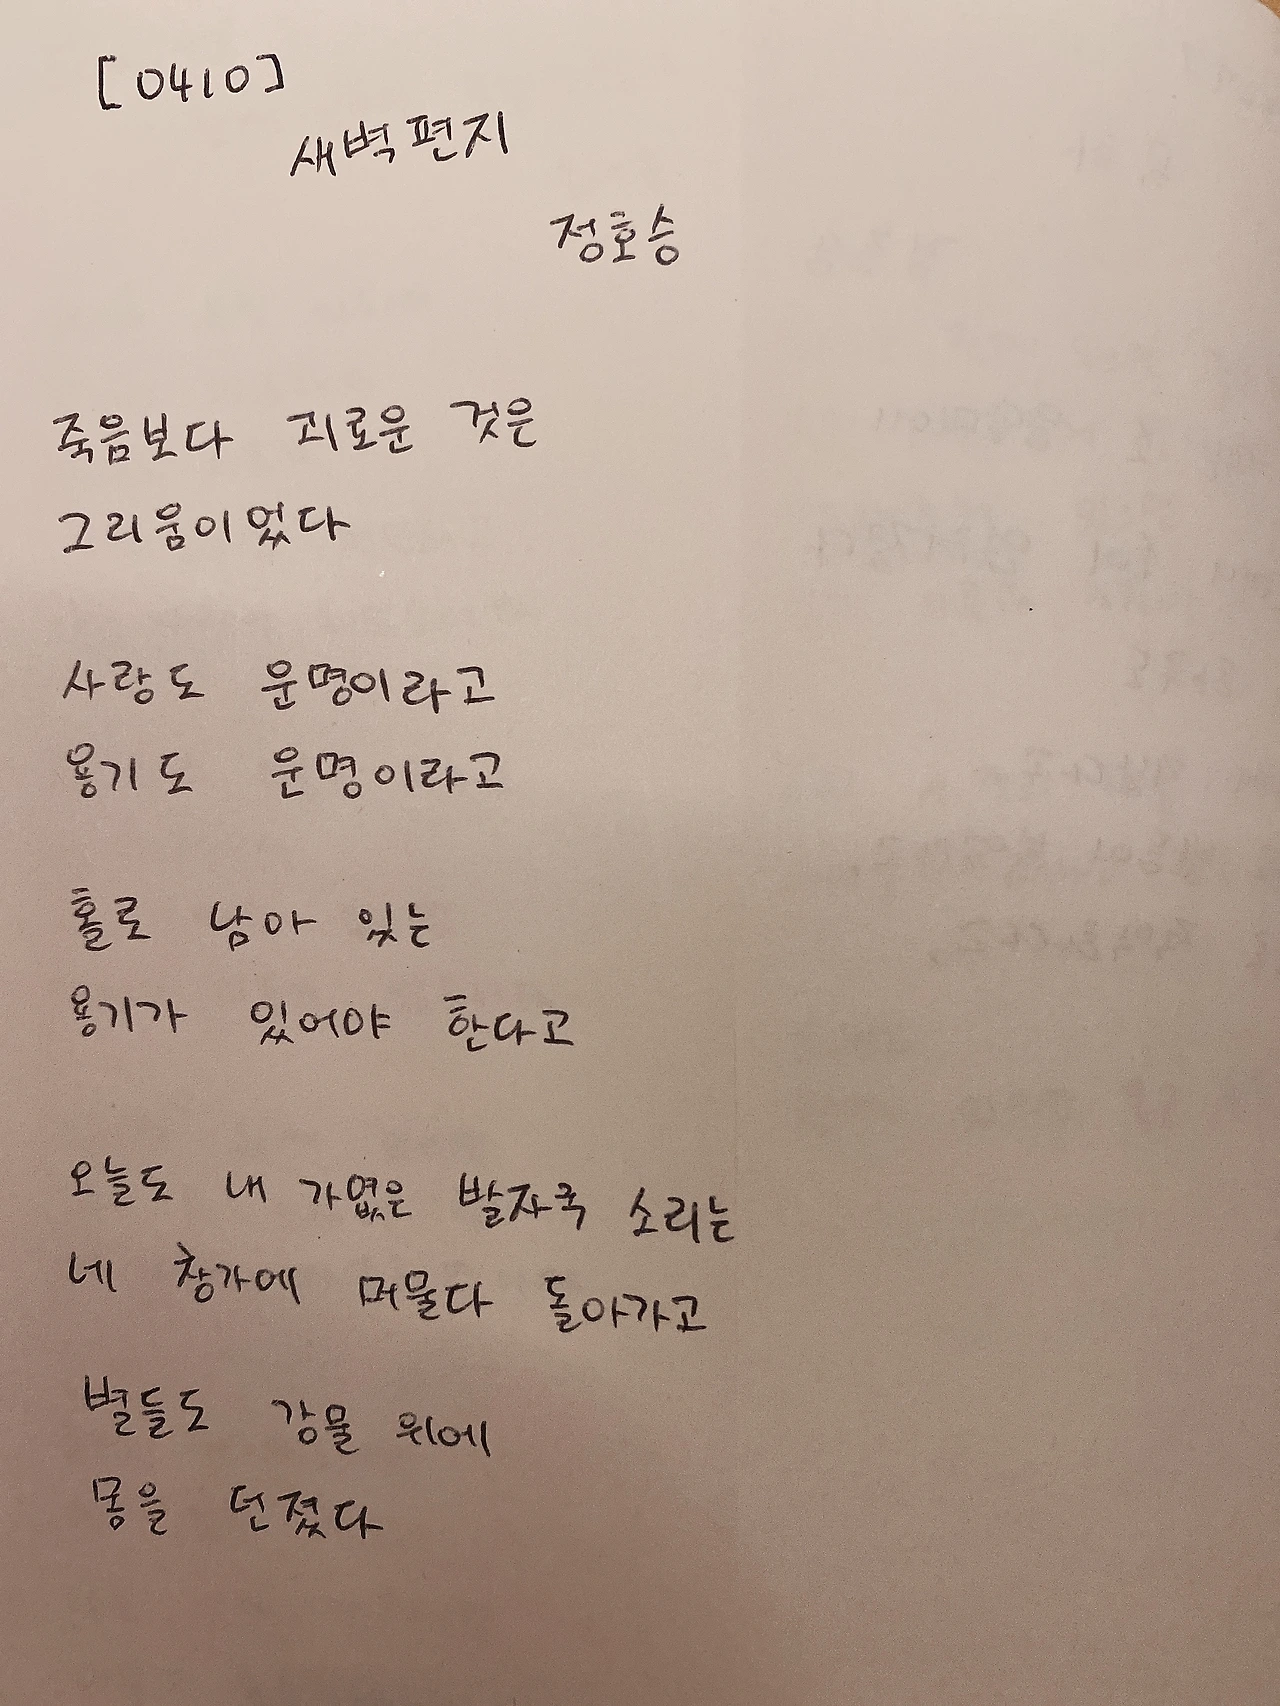 [0410]
새벽편지
정호승
죽음보다 괴로운 것은
그리움이었다
사랑도 운명이라고
용기도 운명이라고
홀로 남아 있는
용기가 있어야 한다고
오늘도 내 가엾은 발자국 소리는
네 창가에 머물다 돌아가고
별들도 강물 위에
몸을 던졌다